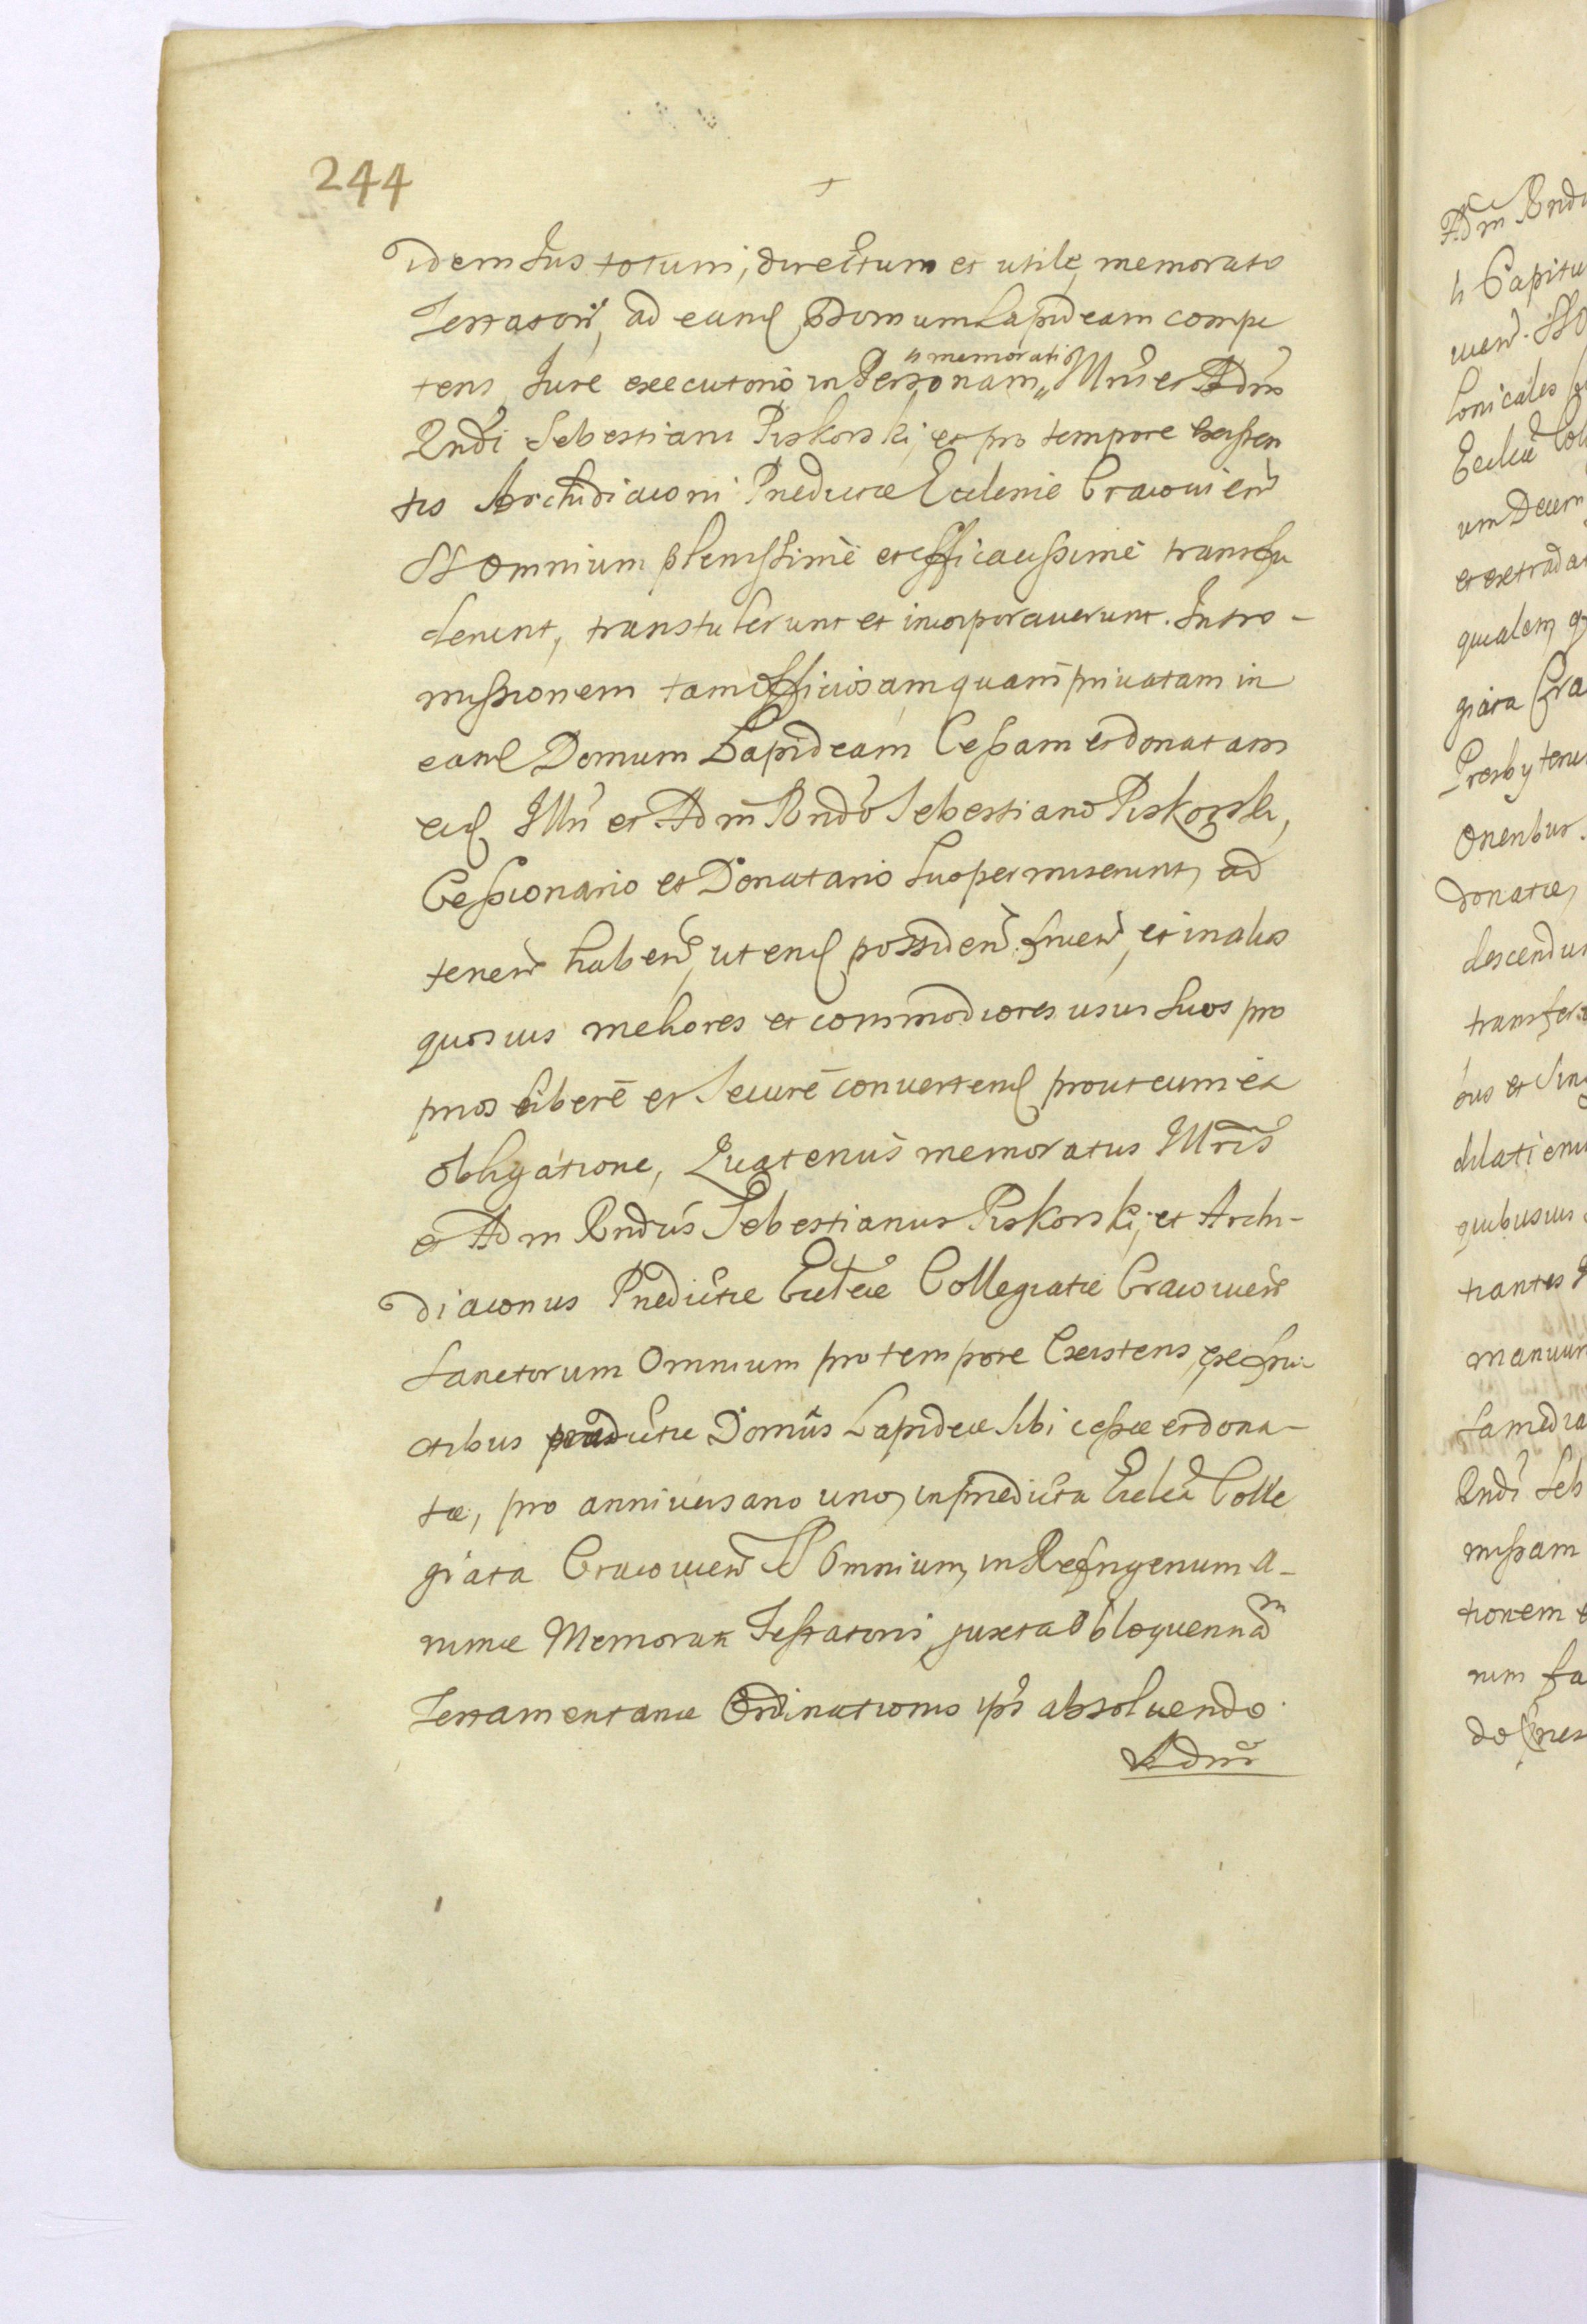 244
idem Jus totum, directum et utile, memorato
Testatori, ad eand Domum Lapideam compe
tens, Jure executorio in Personam „ memorati „ Illris et Adm
Rndi Sebestiani Piskorski, et pro tempore Existen
tis Archidiaconi Prædictæ Ecclesiæ Cracovien
SS Omnium plenissimè et efficacissimè transfu
derunt, transtulerunt et incorporaverunt. Intro-
missionem tam officiosam quam privatam in
eand Domum Lapideam Cessam et donatam
eid Illri et Adm Rndo Sebestiano Piskorski,
Cessionario et Donatario suo permiserunt, ad
tenen haben, utend possiden fruen, et in alios
quosvis meliores et commodiores usus suos pro
prios liberè et securè convertend prout cum ea
obligatione, Quatenus memoratus Illris
et Adm Rndus Sebestianus Piskorski, et Archi-
diaconus Prædictæ Eccleæ Collegiatæ Cracovien
Sanctorum Omnium pro tempore Existens, ex fru
ctibus prædictæ Domus Lapideæ sibi cessæ et dona-
tæ, pro anniversario uno, in prædicta Ecclea Colle
giata Cracovien SS Omnium, in Refrigerium a-
nimæ Memorati Testatoris, juxta Obloquentiam
Testamentariæ Ordinationis ips absolvendo.
Adm
Adm Rndi
h Capitu
vien. SS O
um Decem
et extradat
qualem q
giata Cra
Presbyteru
Onenbus.
donatæ,
descendu
transfer
bus et Sing
dilation
quibusvis
trantes
Rndi Seb
missam
tionem e
rum fa